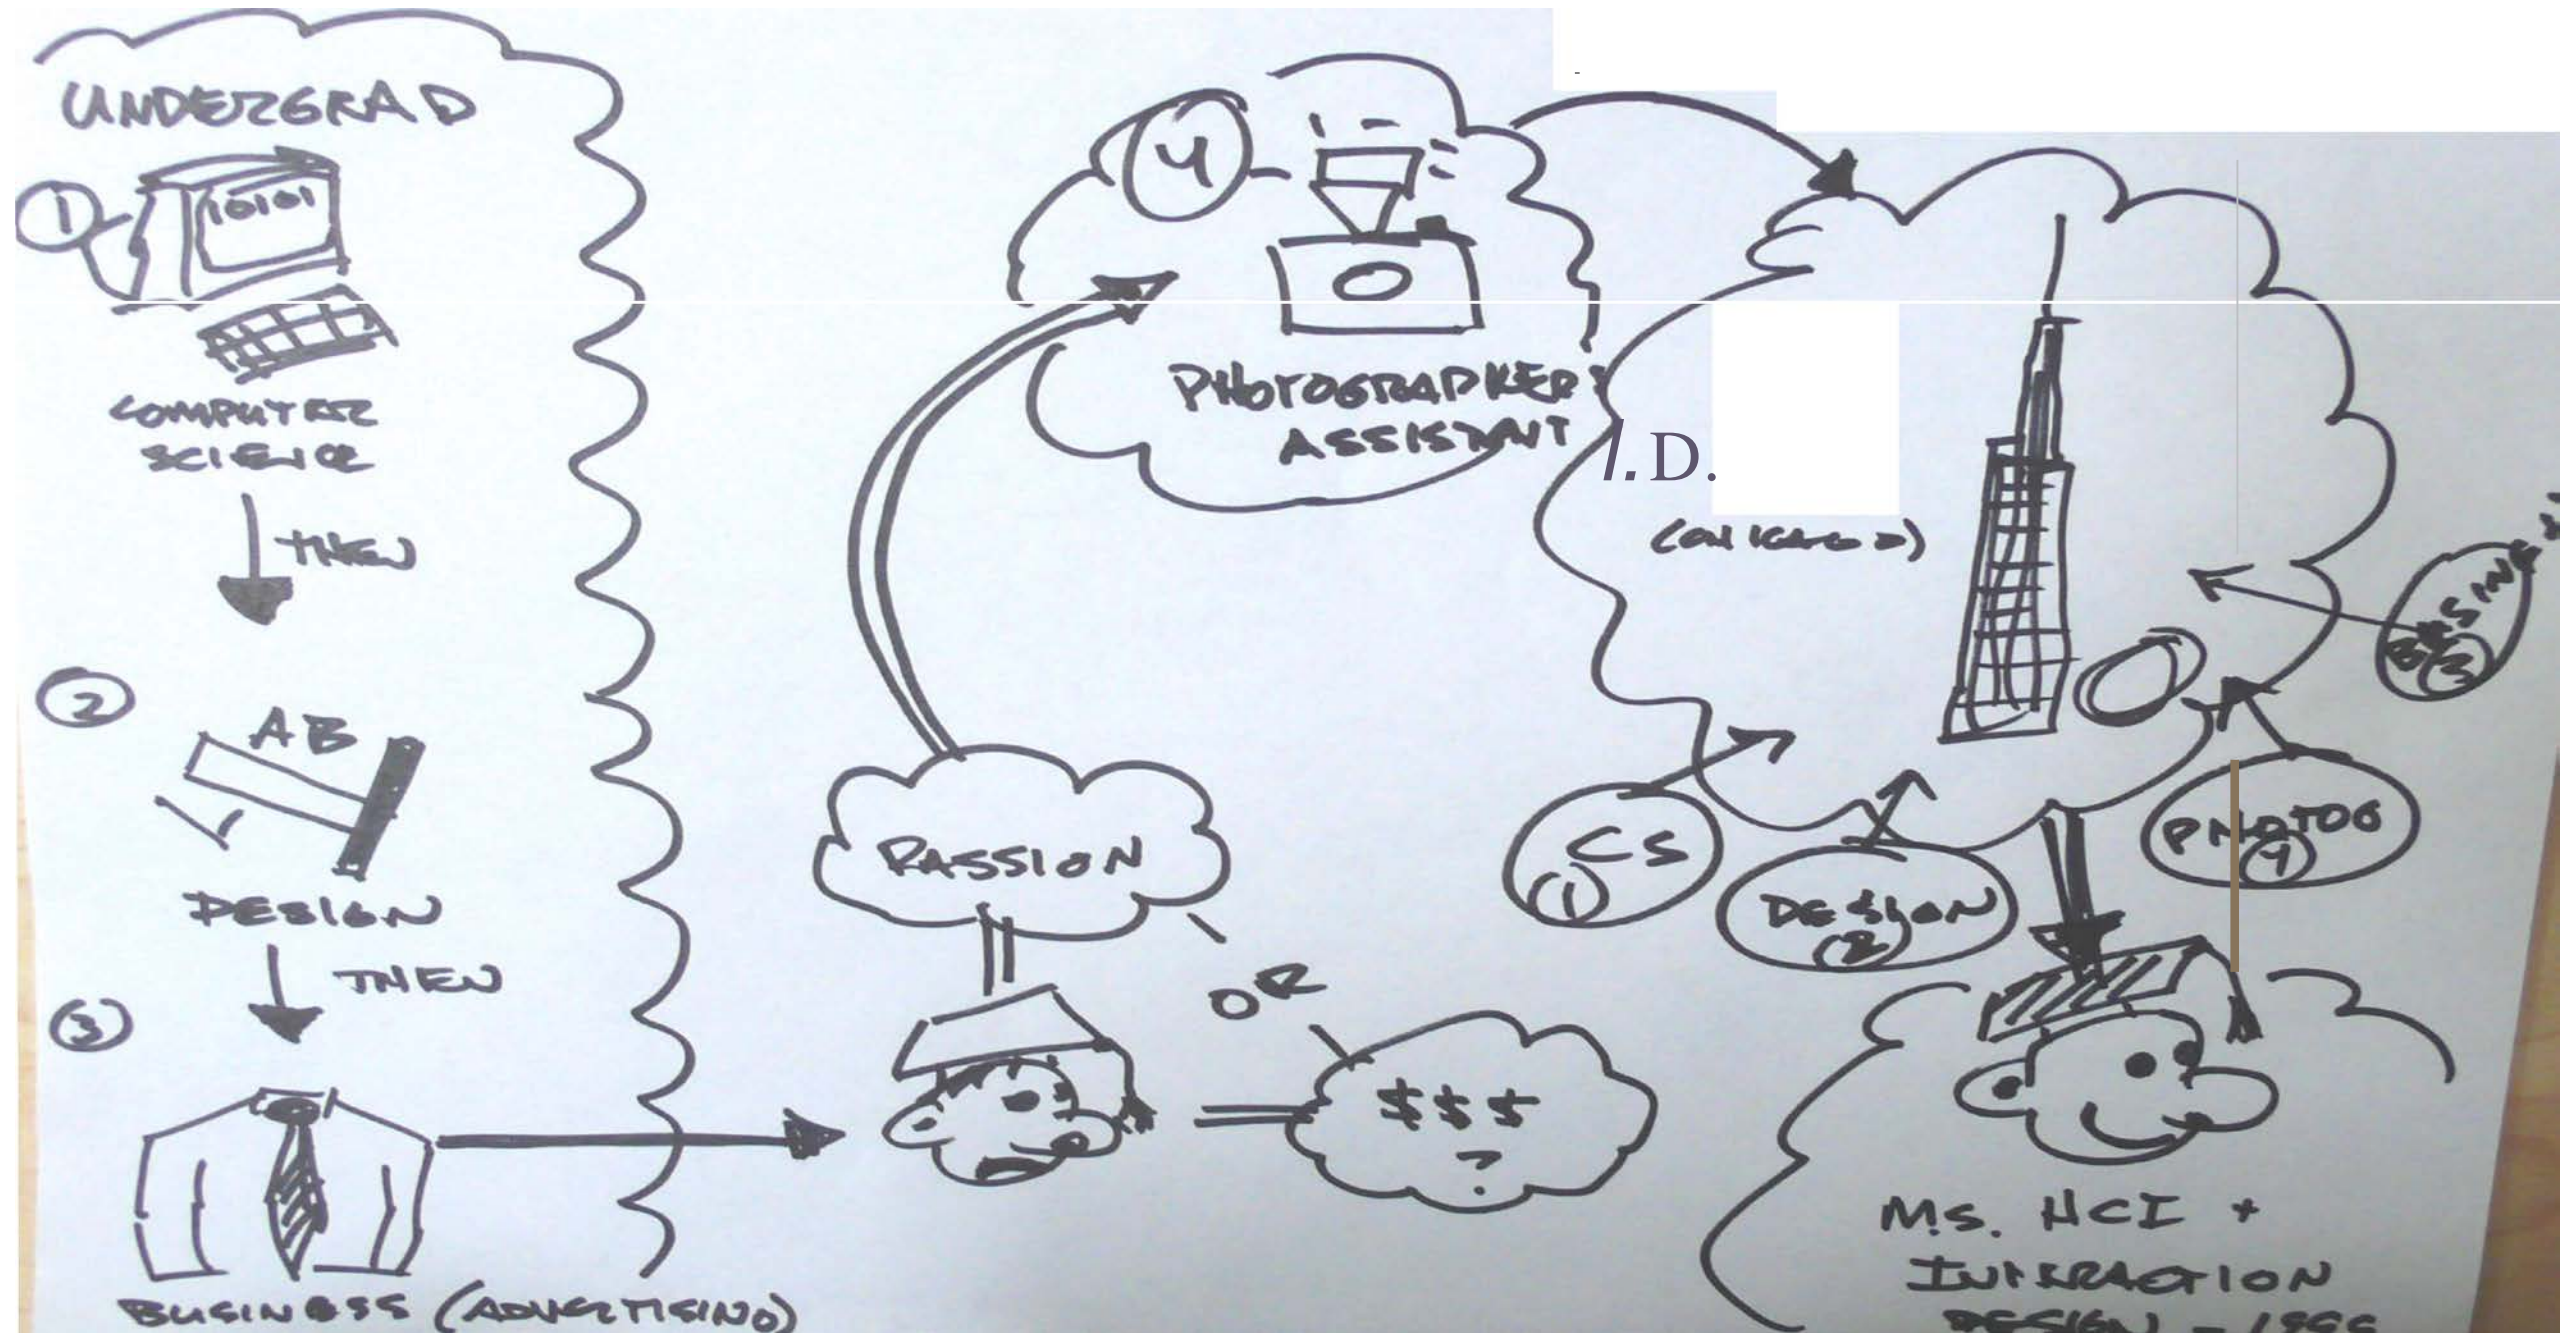 UNDERGRAD
1
10101
COMPUTER
SCIENCE
THEN
2
AB
DESIGN
THEN
3
BUSINESS (ADVERTISING)
PASSION
OR
$$$
?
4
PHOTOGRAPHERS
ASSISTANT
I.D.
(CHICAGO)
CS
1
DESIGN
2
PHOTOG
4
M.S. HCI +
INTERACTION
DESIGN - 1999